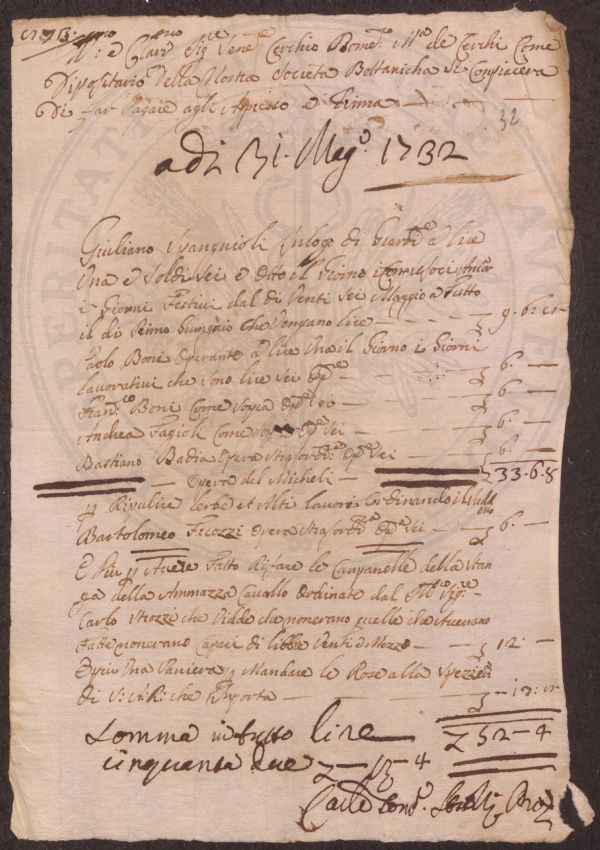 Ill.mo e Clar.mo Sig.re Vene.e Cerchio Dome.co M.a de Cerchi Come
Dipositario Della Nostra Società Bottanicha Si Conpiacera
Di far Pagare agli Apresso e Prima
32
adì 31. Mag.o 1732
Giuliano Spagnioli In logo di Giard.e a lire
Una e Soldi sei e dito il Giorno Ancor
i Giorni Festivi dal dì Venti Sei Maggio a tutto
il dì Primo Giungnio che Vengano lire — 9. 6.
Paolo Boni Operante a lire Una il Giorno i Giorni
lavorativi che sono lire sei Op.re — 6. —
Fran.co Boni Come sopra Op.e sei — 6. —
Andrea Fagioli Come sopra Op.e sei — 6. —
Bastiano Badia Opera Strasord.a Op.e sei — 6. —
Opera del Micheli — 33. 6. 8
p Ripulire l'erbe et Altri lavori Ordinando il
Bartolomeo Fecozzi Opera Strasord.a Op.e sei — 6. —
E Più p Avere Fatto Rifare le Canpanelle della Stan
ga della Ammazza Cavallo Ordinate dal Sig.re
Carlo Strozzi che Vidde che non erano quelle che Avevano
Fatte non erano Capaci di libbre Venti di Mezzo — 12. —
E più Una Paniera p Mandare le Rose alla Spezier.
di S: M: N: che Inporta —
Somma in tutto lire — 52 — 4
cinquanta due — 4
Carlo